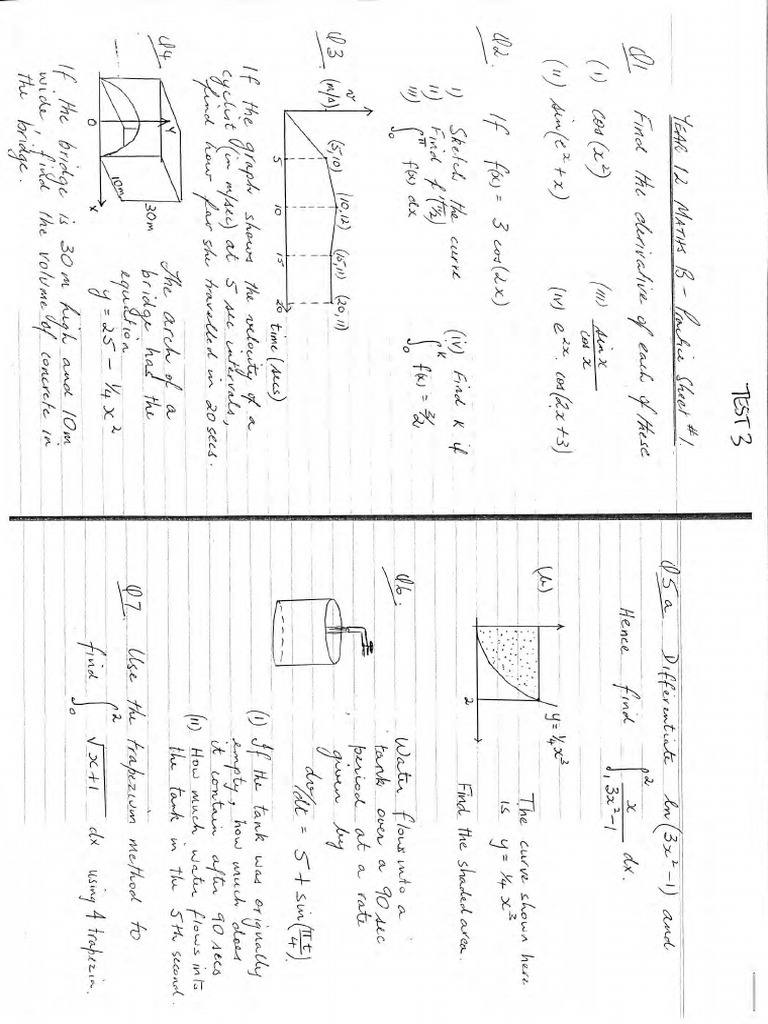 TEST 3
YEAR 12 MATHS B - PRACTICE SHEET #1
Q1 Find the derivative of each of these
(i) cos(x²) (iii) sin x / cos x
(ii) sin(e^x + x) (iv) e^2x. cos(2x+3)
Q2. If f(x) = 3 cos(2x)
i) Sketch the curve
ii) Find f'(π/2)
iii) ∫₀^π f(x) dx
(iv) Find k if
∫₀^k f(x) = 3/2
Q3
v
(m/s)
(5,10) (10,12) (15,11) (20,11)
5 10 15 20 time (secs)
If the graph shows the velocity of a
cyclist (in m/sec) at 5 sec intervals,
find how far she travelled in 20 secs.
Q4
Y
O
X
10m
30m
The arch of a
bridge has the
equation
y = 25 - ¼x²
If the bridge is 30m high and 10m
wide, find the volume of concrete in
the bridge.
Q5a Differentiate ln(3x²-1) and
Hence find ∫₁² x / 3x²-1 dx.
(b)
y = ¼x³
2
The curve shown here
is y = ¼x³
Find the shaded area.
Q6.
Water flows into a
tank over a 90 sec
period at a rate
given by
dv/dt = 5 + sin(πt/4)
(i) If the tank was originally
empty, how much does
it contain after 90 secs
(ii) How much water flows into
the tank in the 5th second.
Q7 Use the trapezium method to
find ∫₀² √x+1 dx using 4 trapezia.